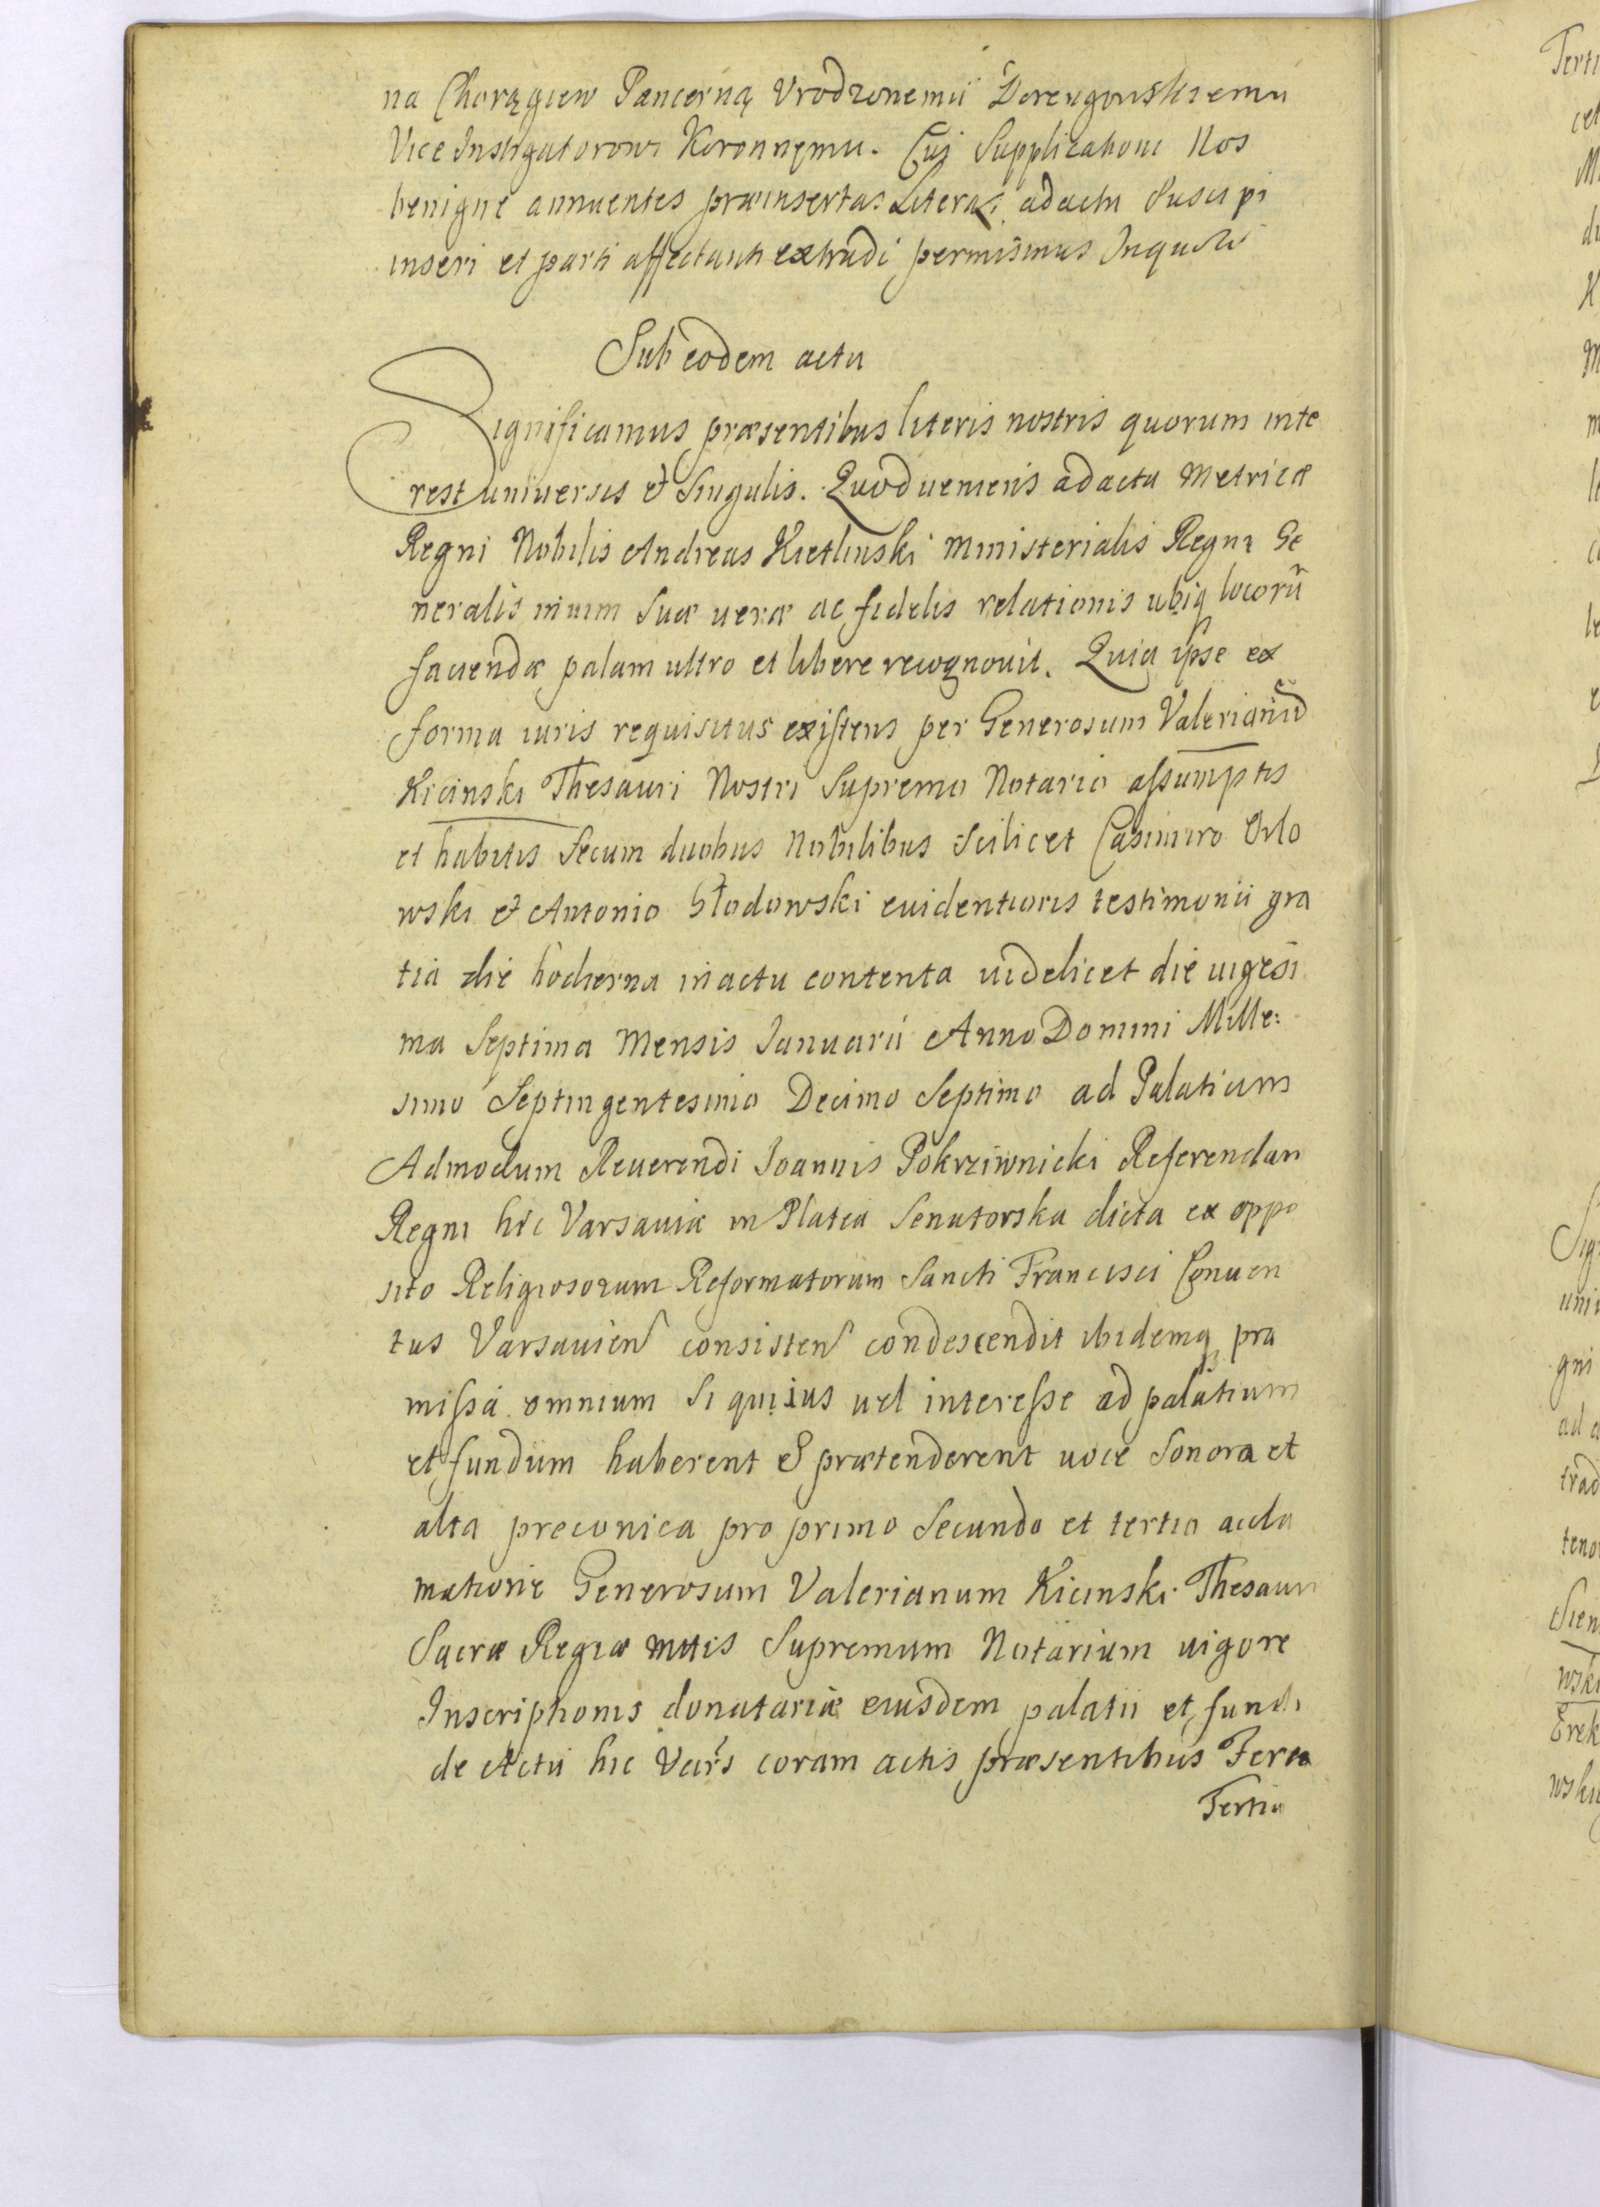 na Chorągiew Pancerną Vrodzonemu Derengowskiemu
Vice Instigatorowi Koronnęmu. Cui Supplicationi Nos
benigne annuentes præinsertas Literas ad acta Suscipi
inseri et parti affectanti extradi permisimus
Sub eodem actu
Significamus præsentibus literis nostris quorum inte
rest universis et singulis. Quod veniens ad acta Metricæ
Regni Nobilis Andreas Kietlinski Ministerialis Regni Ge
neralis in vim suæ veræ ac fidelis relationis ubiq locorū
faciendæ palam ultro et libere recognovit. Quia ipse ex
forma iuris requisitus existens per Generosum Valerianū
Kicinski Thesauri Nostri Supremo Notario assumptis
et habitis secum duobus Nobilibus scilicet Casimiro Orlo
wski et Antonio Słodowski evidentioris testimonii gra
tia die hodierna in actu contenta videlicet die vigesi
ma septima Mensis Januarii Anno Domini Mille:
simo Septingentesimo Decimo Septimo ad Palatium
Admodum Reverendi Joannis Pokrziwnicki Referendarii
Regni hic Varsaviæ in Platea Senatorska dicta ex oppo
sito Religiosorum Reformatorum Sancti Francisci Conven
tus Varsavien consisten condescendit ibidemq præ
missa omnium si quivis vel interesse ad palatium
et fundum haberent et prætenderent voce sonora et
alta preconica pro primo secundo et tertio accla
matione Generosum Valerianum Kicinski Thesauri
Sacræ Regiæ Mttis Supremum Notarium vigore
Inscriptionis donatariæ eiusdem palatii et fundi
de actu hic Vars coram actis præsentibus Feria
Tertia